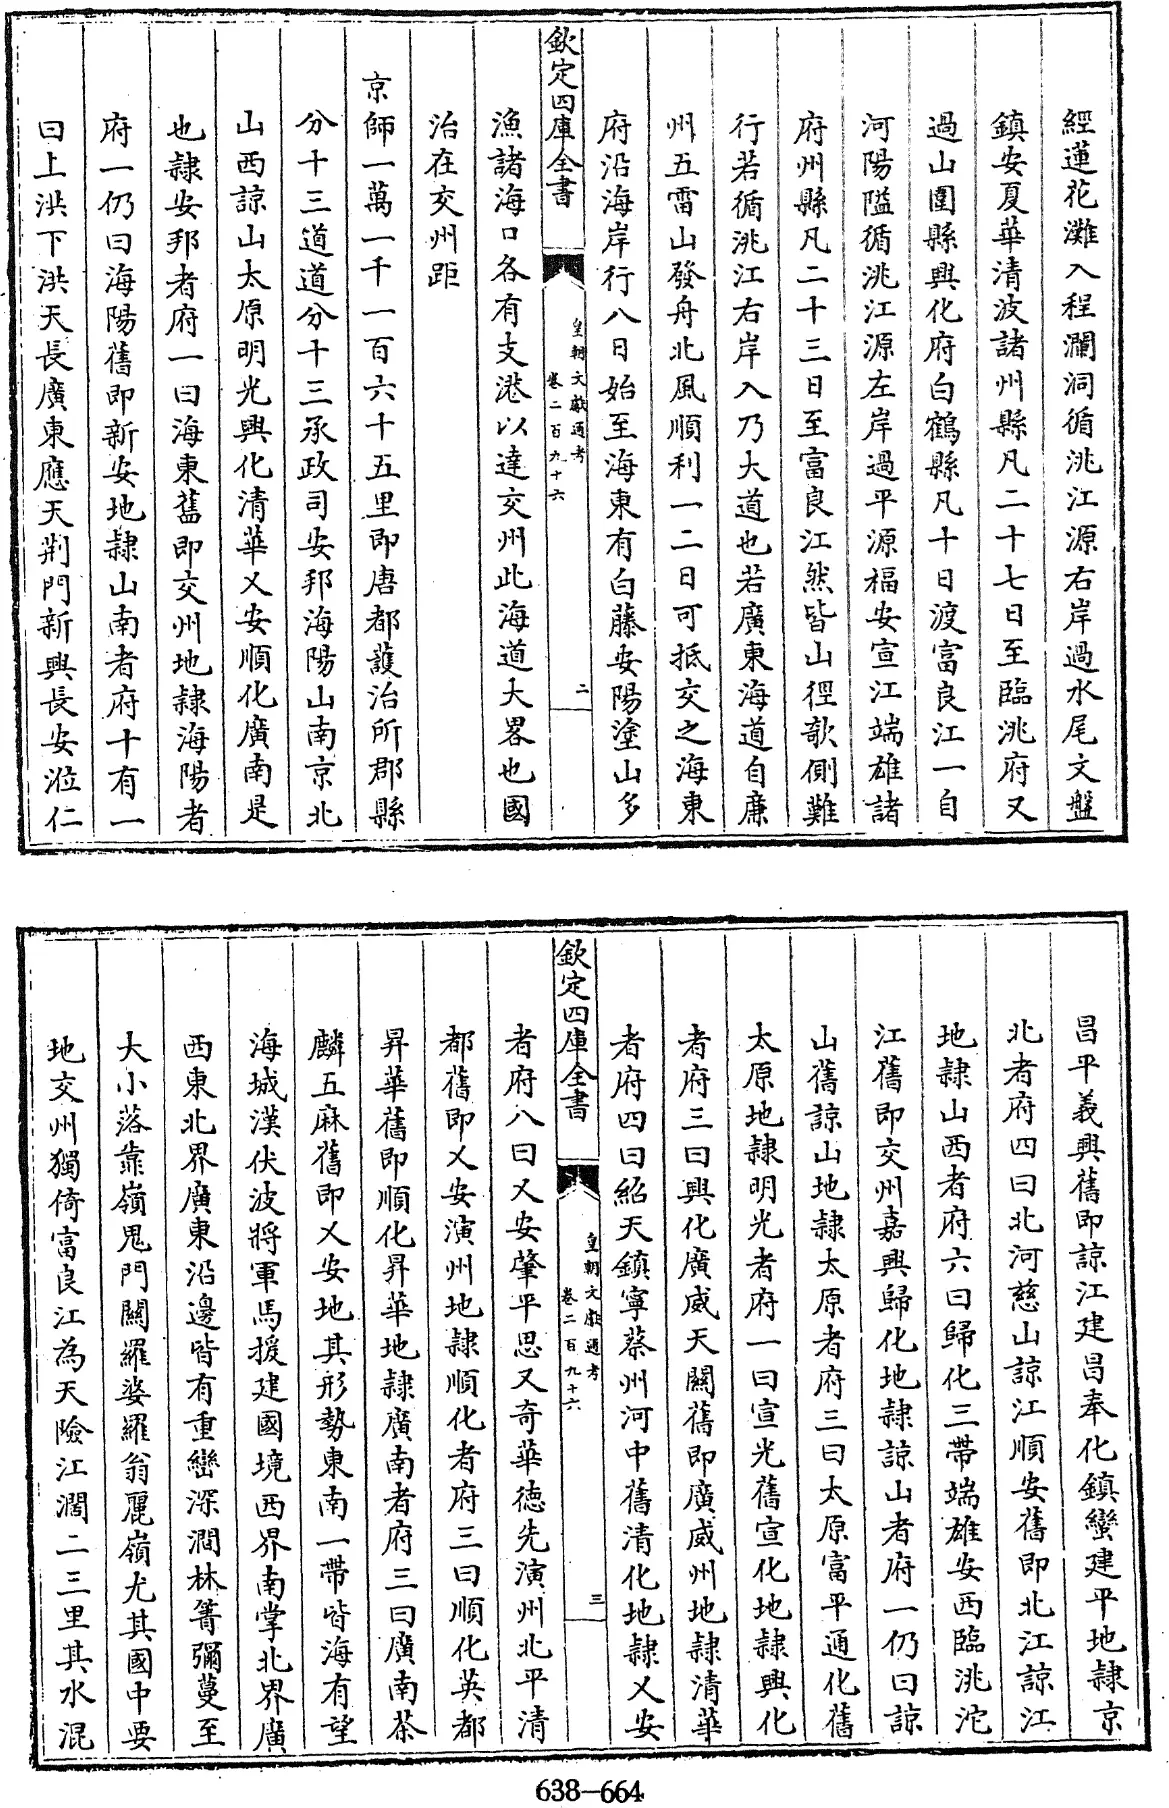 經蓮花灘入程瀾洞循洮江源右岸過水尾文盤
鎮安夏華清波諸州縣凡二十七日至臨洮府又
過山圍縣興化府白鶴縣凡十日渡富良江一自
河陽隘循洮江源左岸過平源福安宣江端雄諸
府州縣凡二十三日至富良江然皆山徑欹側難
行若循洮江右岸入乃大道也若廣東海道自廉
州五雷山發舟北風順利一二日可抵交之海東
府沿海岸行八日始至海東有白藤安陽塗山多
欽定四庫全書
皇朝文獻通考
卷二百九十六
二
漁諸海口各有支港以達交州此海道大畧也國
治在交州距
京師一萬一千一百六十五里即唐都護治所郡縣
分十三道道分十三承政司安邦海陽山南京北
山西諒山太原明光興化清華乂安順化廣南是
也隸安邦者府一曰海東舊即交州地隸海陽者
府一仍曰海陽舊即新安地隸山南者府十有一
曰上洪下洪天長廣東應天荆門新興長安涖仁
昌平義興舊即諒江建昌奉化鎮蠻建平地隸京
北者府四曰北河慈山諒江順安舊即北江諒江
地隸山西者府六曰歸化三帶端雄安西臨洮沱
江舊即交州嘉興歸化地隸諒山者府一仍曰諒
山舊諒山地隸太原者府三曰太原富平通化舊
太原地隸明光者府一曰宣光舊宣化地隸興化
者府三曰興化廣威天關舊即廣威州地隸清華
者府四曰紹天鎮寧蔡州河中舊清化地隸乂安
欽定四庫全書
皇朝文獻通考
卷二百九十六
三
者府八曰乂安肇平思乂奇華德先演州北平清
都舊即乂安演州地隸順化者府三曰順化英都
昇華舊即順化昇華地隸廣南者府三曰廣南茶
麟五麻舊即乂安地其形勢東南一帶皆海有望
海城漢伏波將軍馬援建國境西界南掌北界廣
西東北界廣東沿邊皆有重巒深澗林箐彌蔓至
大小落靠嶺鬼門關羅婆羅翁麗嶺尤其國中要
地交州獨倚富良江為天險江濶二三里其水混
638—664